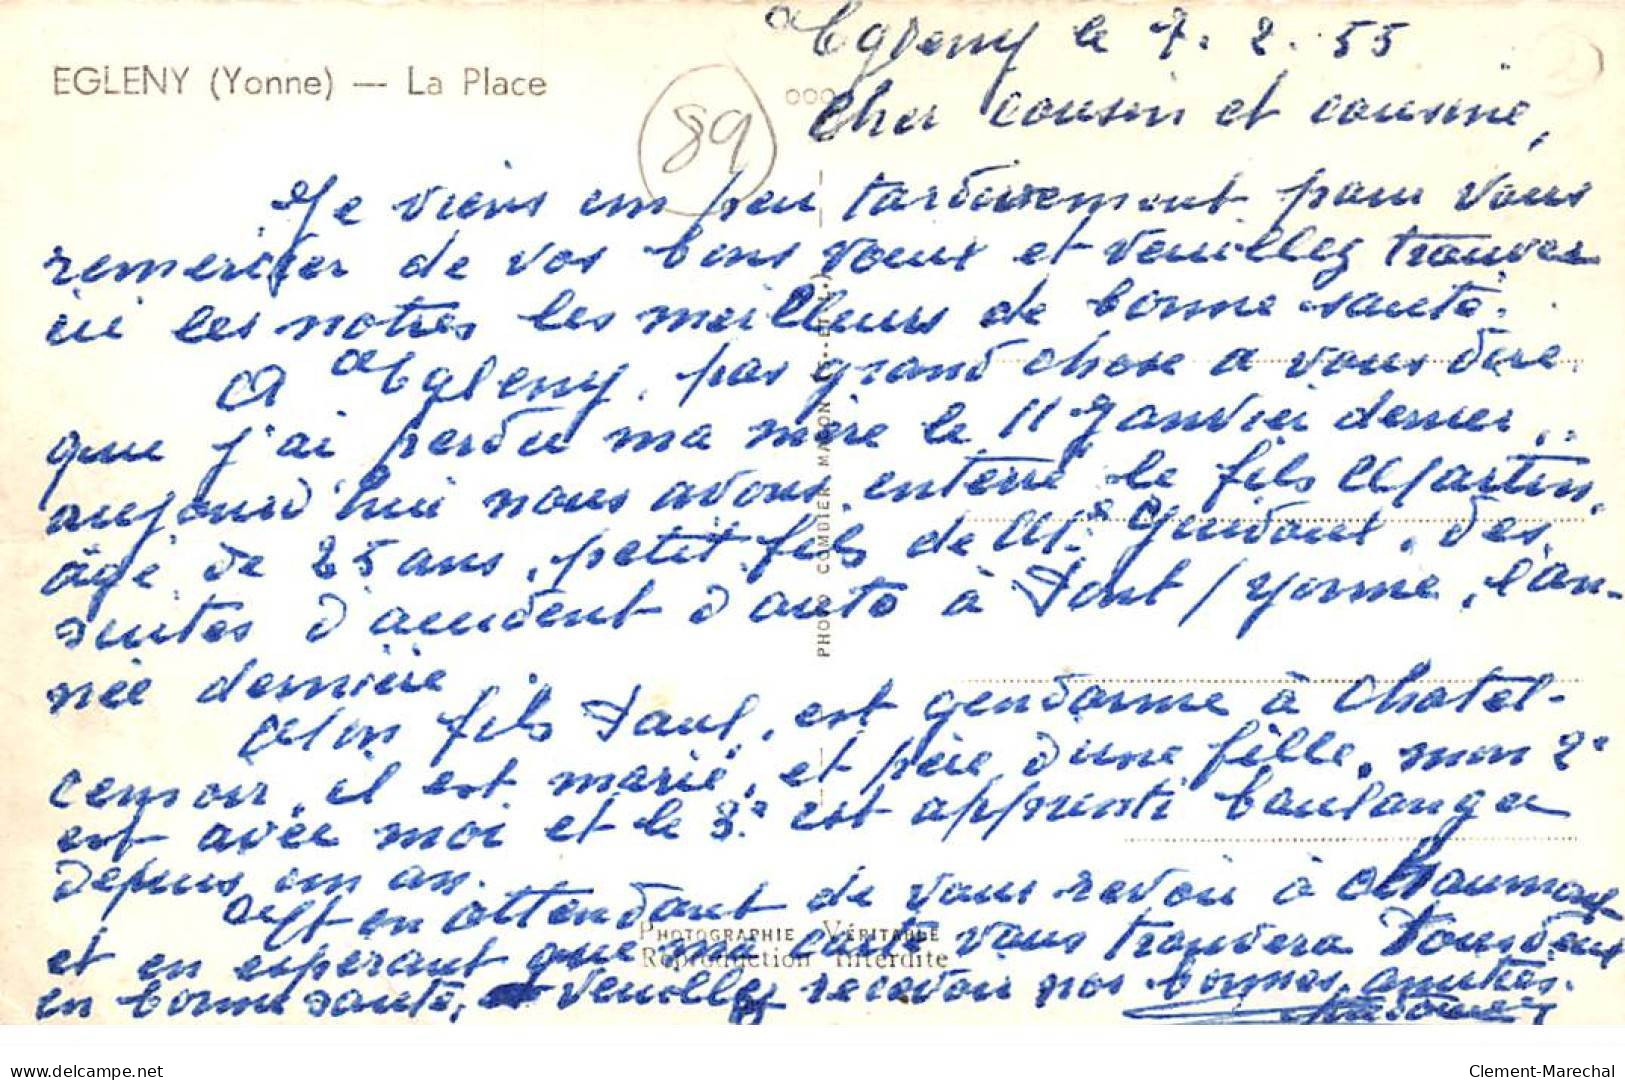 EGLENY (Yonne) — La Place
Egleny le 7. 2. 55
89
Cher cousin et cousine,
Je viens un peu tardivement pour vous
remercier de vos bons voeux et veuillez trouver
ici les notres les meilleurs de bonne santé.
A Egleny, pas grand chose a vous dire
que j'ai perdu ma mère le 11 Janvier dernier..
aujourd'hui nous avons enterré le fils Martin,
âgé de 25 ans, petit fils de Me Guidout, des
suites d'accident d'auto à Pont / Yonne, l'an-
née dernière.
Mon fils Paul, est gendarme à Chatel-
censoir, il est marié, et père d'une fille, mon 2e
est avec moi et le 3e est apprenti boulanger
depuis un an.
Et en attendant de vous revoir à Chaumont
et en esperant que ma carte vous trouvera tous deux
en bonne santé, veuillez recevoir nos bonnes amitiés.
PHOTO COMBIER MACON (S.-ET-L.)
PHOTOGRAPHIE VÉRITABLE
Reproduction Interdite
www.delcampe.net
Clement-Marechal